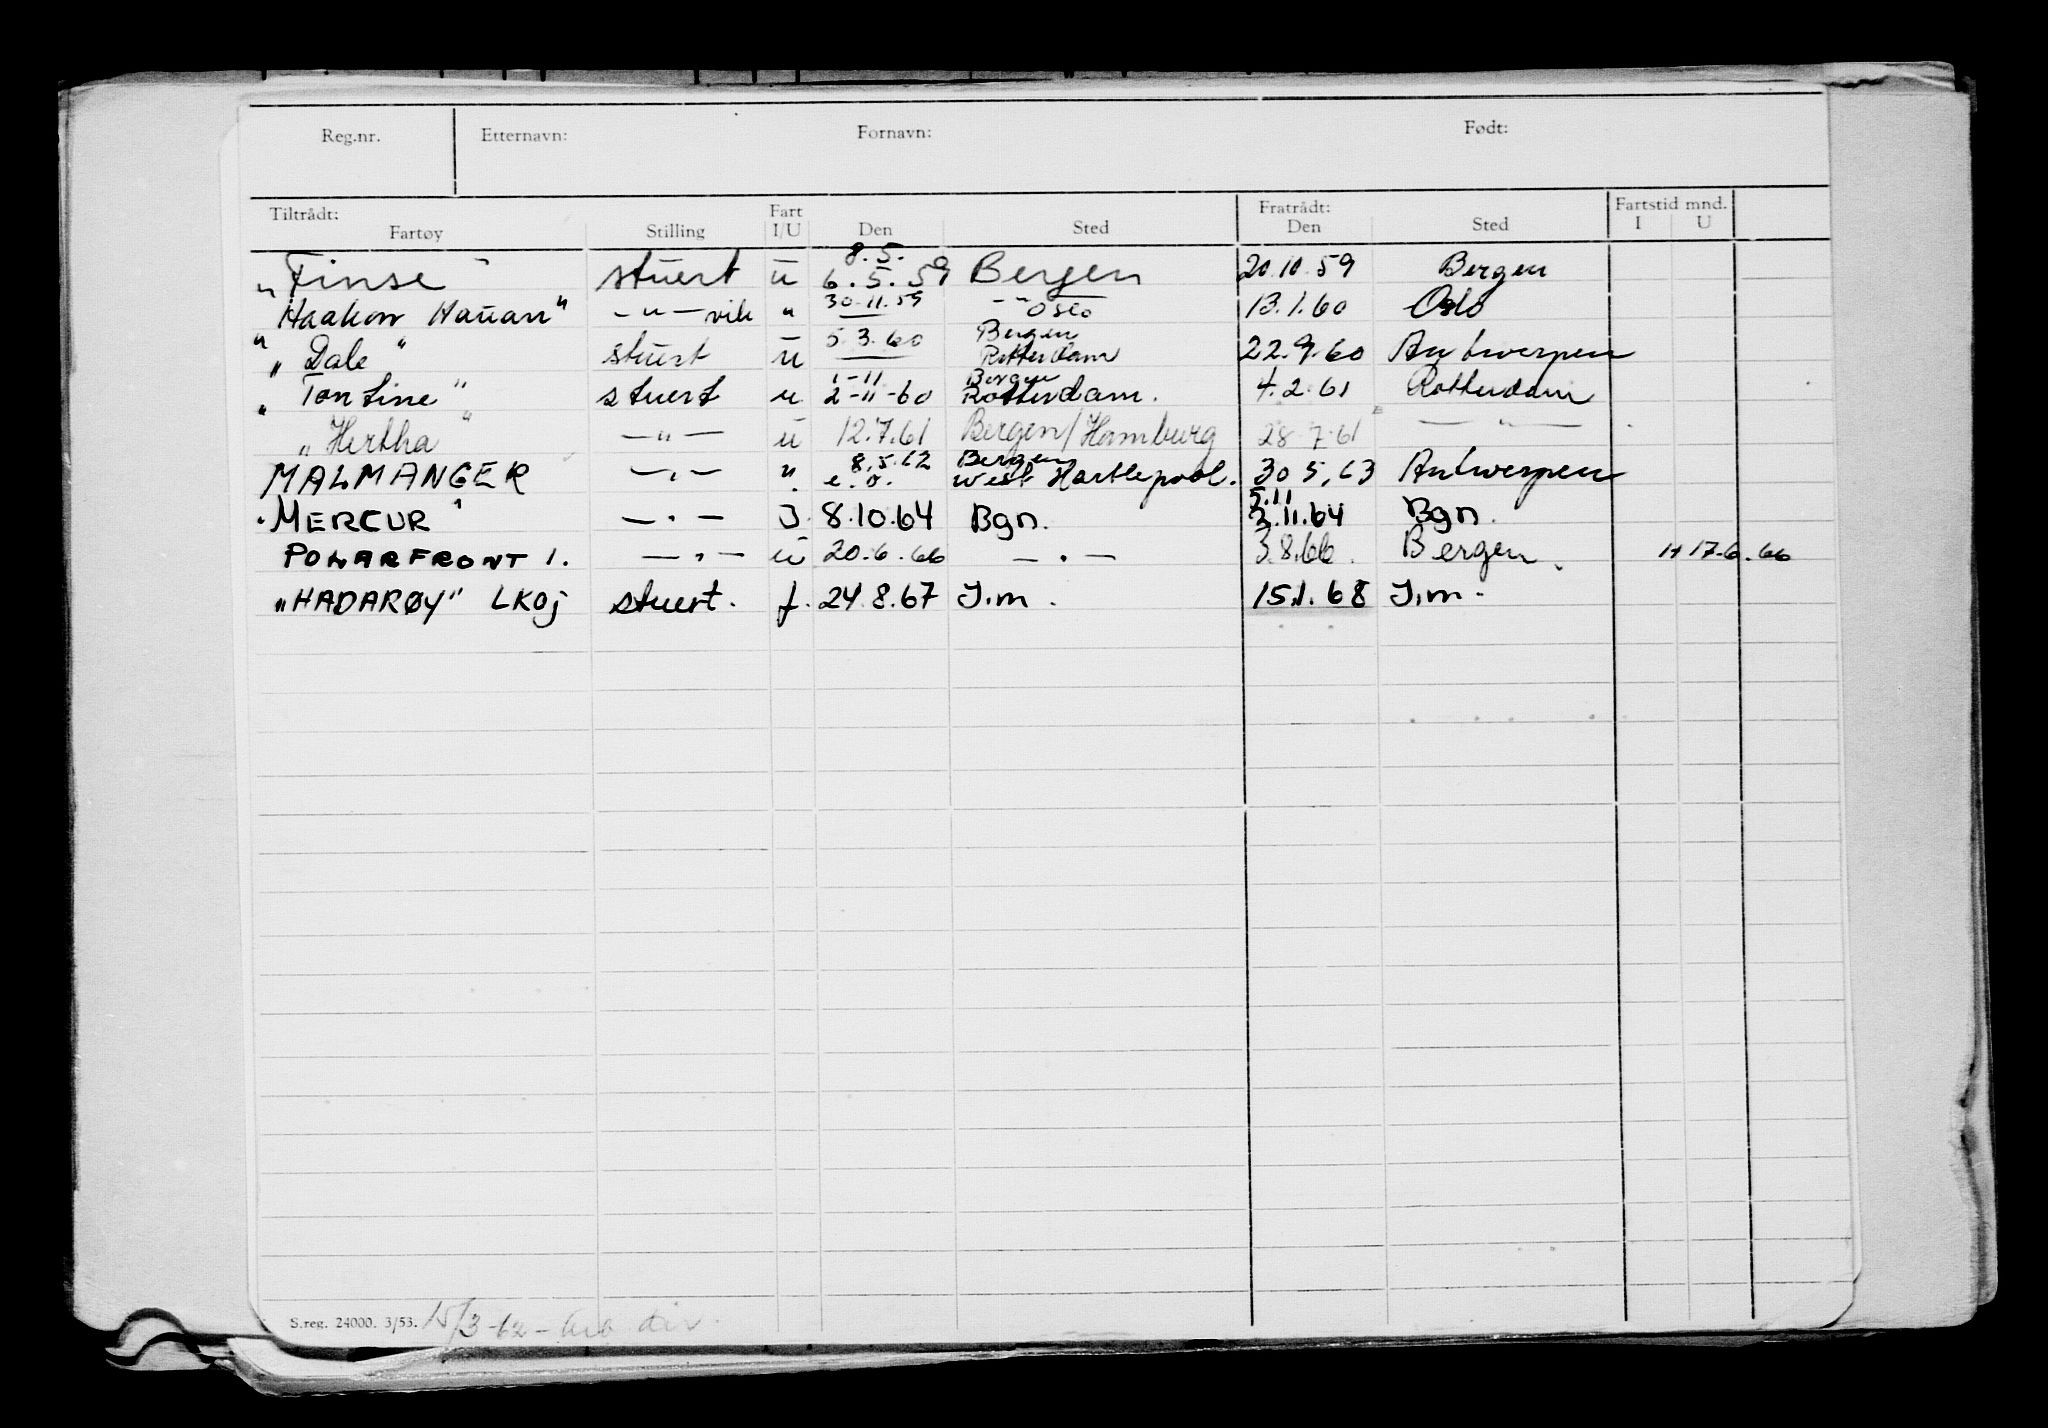 Reg.nr. Etternavn: Fornavn: Født:
Tiltrådt: Fratrådt: Fartstid mnd.
Fartøy Stilling Fart I/U Den Sted Den Sted I U
8.5.
„Finse" stuert u 6.5.59 Bergen 20.10.59 Bergen
„Haakon Hauan" —"— vik " 30.11.59 Oslo 13.1.60 Oslo
5.3.60 Bergen
„Dale" stuert u Rotterdam 22.9.60 Antwerpen
1-11 Bergen
„Tontine" stuert u 2-11-60 Rotterdam. 4.2.61 Rotterdam
„Hertha" —"— u 12.7.61 Bergen/Hamburg 28 7-61 —"—
8.5.62 Bergen
MALMANGER —"— " e.o. West Hartlepool. 30 5.63 Antwerpen
5.11
"MERCUR" —"— I. 8.10.64 Bgn. 3.11.64 Bgn.
POLARFRONT 1. —"— u 20.6.66 —"— 3.8.66. Bergen. H 17-6.66
„HADARØY" LKOJ stuert. f. 24.8.67 I.m. 15.1.68 I.m.
S.reg. 24000. 3/53. 15/3-62-